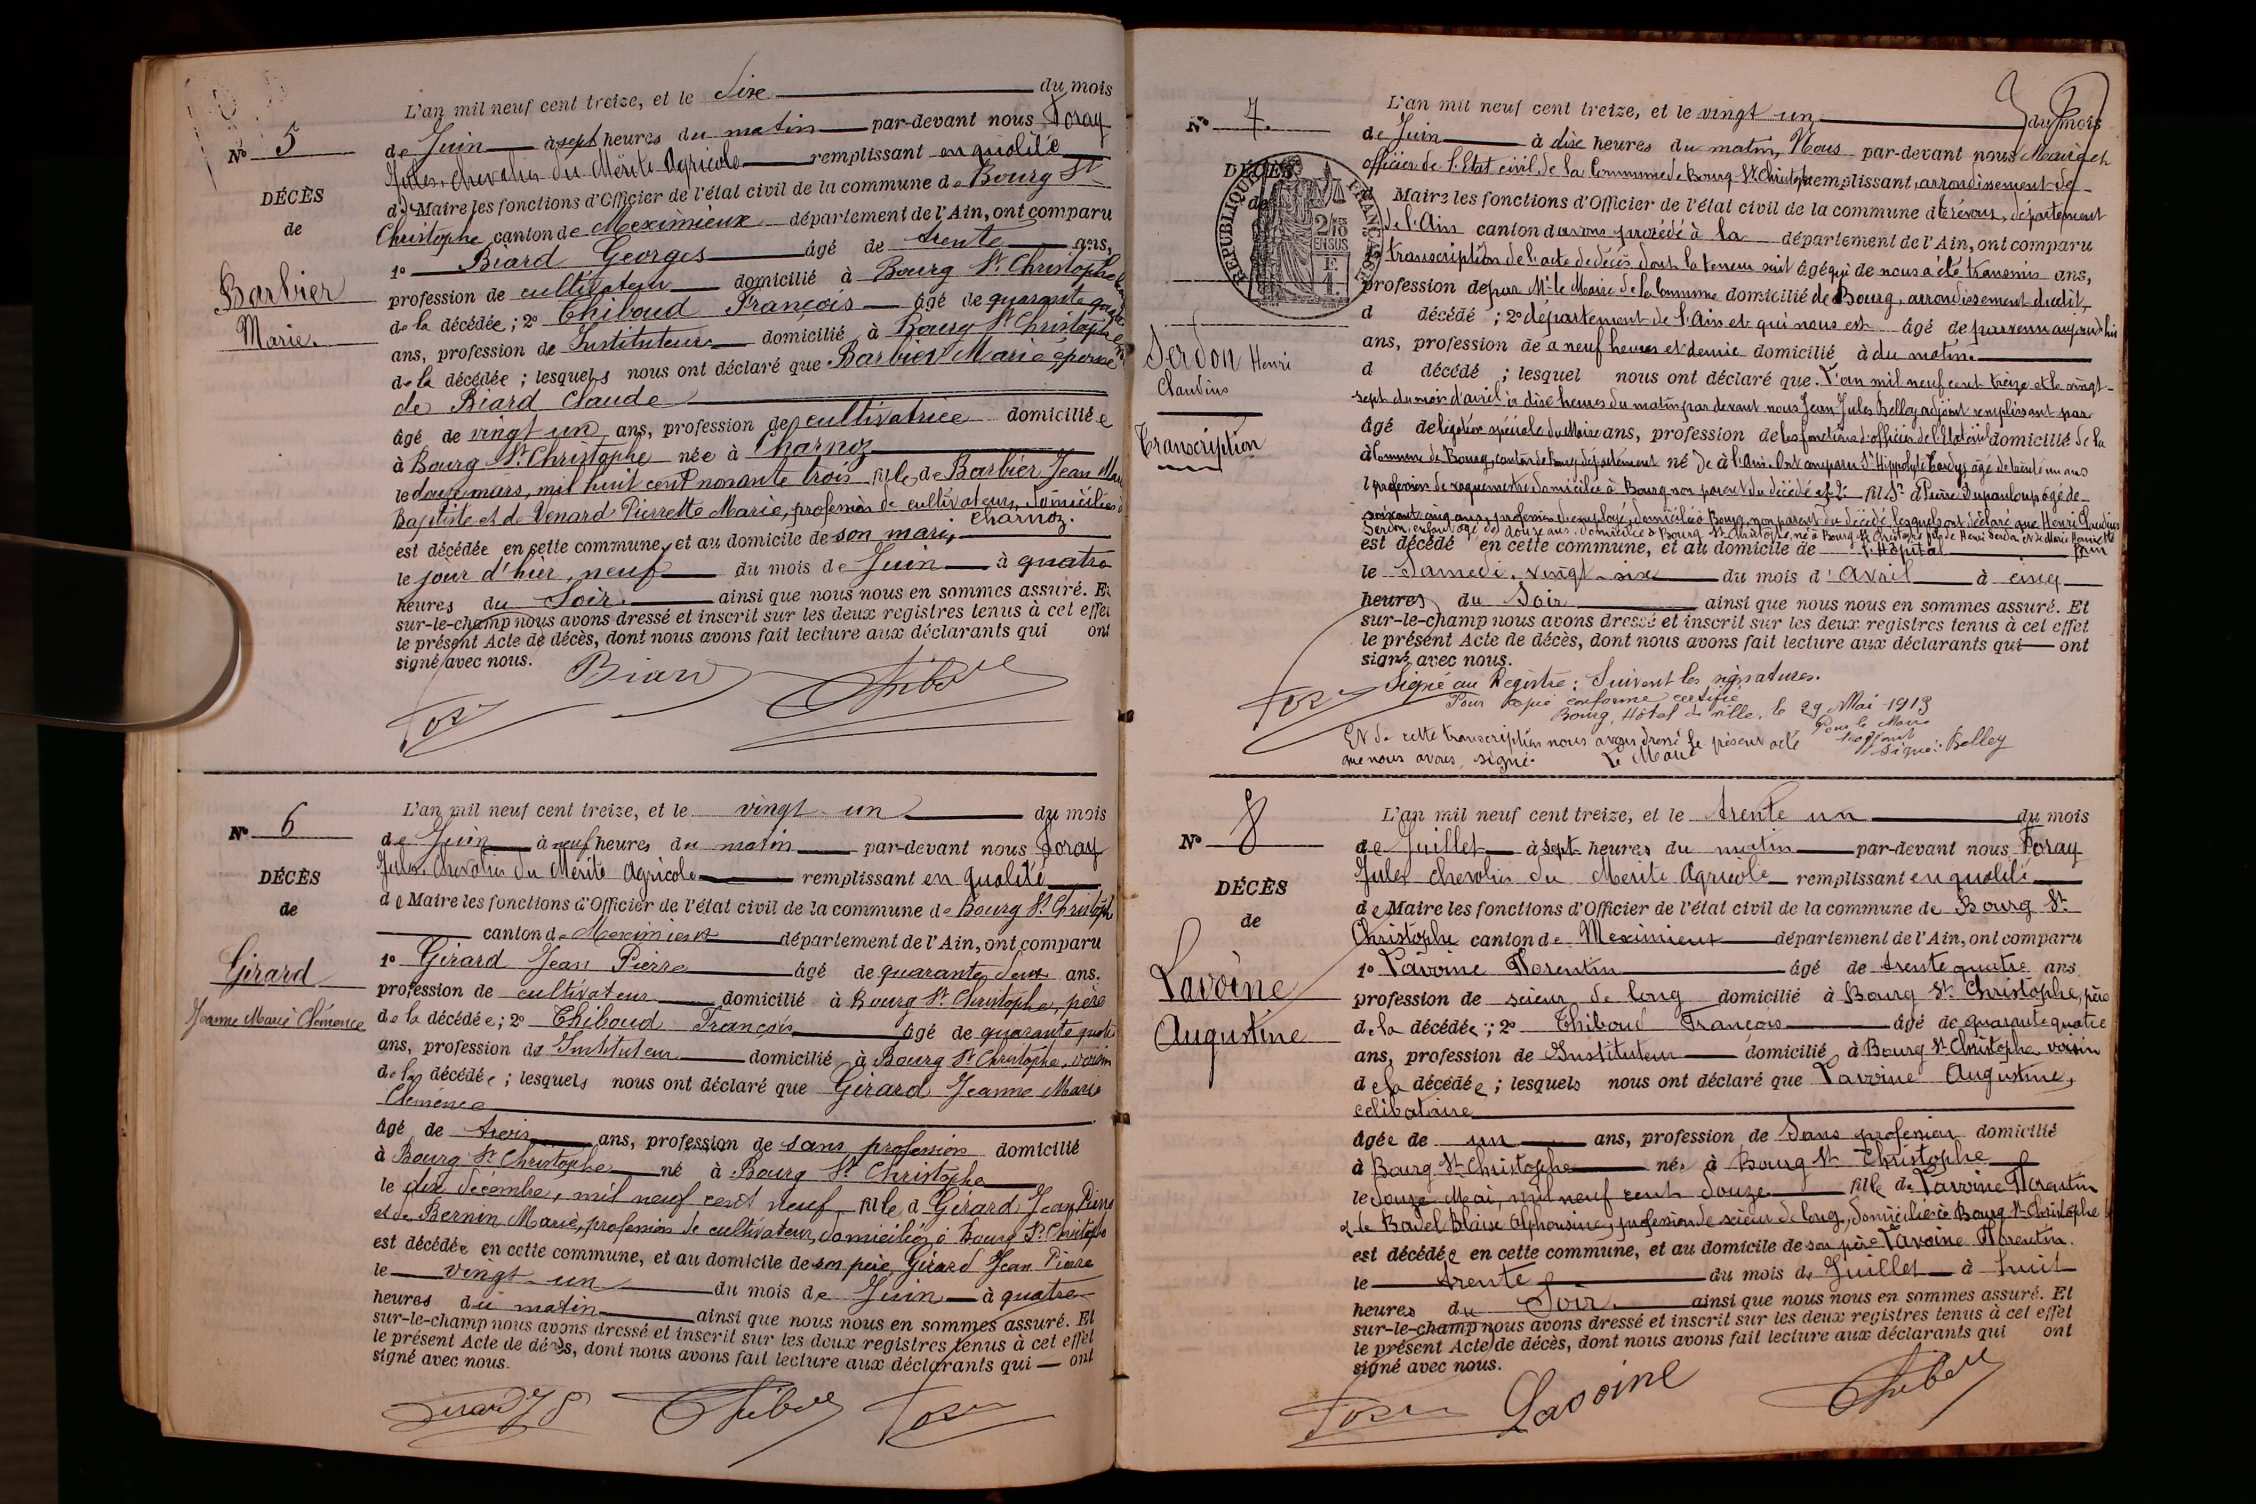 N° 5
DÉCÈS
de
Barbier
Marie
L'an mil neuf cent treize, et le dixe du mois
de Juin à sept heures du matin par-devant nous Foray
Jules, Chevalier du Mérite Agricole remplissant en qualité
de Maire les fonctions d'Officier de l'état civil de la commune de Bourg St
Christophe canton de Meximieux département de l'Ain, ont comparu
1° Biard Georges âgé de trente ans,
profession de cultivateur domicilié à Bourg St Christophe
de la décédée ; 2° Thiboud François âgé de quarante quatre
ans, profession de Instituteur domicilié à Bourg St Christophe
de la décédée ; lesquels nous ont déclaré que Barbier Marie épouse
de Biard Claude
âgé de vingt un ans, profession de cultivatrice domiciliée
à Bourg St Christophe née à Charnoz
le douze mars, mil huit cent nonante trois fille de Barbier Jean
Baptiste et de Venard Pierrette Marie, profession de cultivateurs, domiciliés à
Charnoz.
est décédée en cette commune, et au domicile de son mari,
le jour d'hier, neuf du mois de Juin à quatre
heures du Soir. ainsi que nous nous en sommes assuré. Et
sur-le-champ nous avons dressé et inscrit sur les deux registres tenus à cet effet
le présent Acte de décès, dont nous avons fait lecture aux déclarants qui ont
signé avec nous.
Biard
N° 6
DÉCÈS
de
Girard
Jeanne Marie Clémence
L'an mil neuf cent treize, et le vingt un du mois
de Juin à neuf heures du matin par-devant nous Foray
Jules, Chevalier du Mérite Agricole remplissant en qualité
de Maire les fonctions d'Officier de l'état civil de la commune de Bourg St Christophe
canton de Meximieux département de l'Ain, ont comparu
1° Girard Jean Pierre âgé de quarante deux ans.
profession de cultivateur domicilié à Bourg St Christophe, père
de la décédée; 2° Thiboud François âgé de quarante quatre
ans, profession de Instituteur domicilié à Bourg St Christophe, voisin
de la décédée ; lesquels nous ont déclaré que Girard Jeanne Marie
Clémence
âgé de trois ans, profession de sans profession domicilié
à Bourg St Christophe né à Bourg St Christophe
le dix décembre, mil neuf cent neuf fille d Girard Jean Pierre
et de Bernin Marie, profession de cultivateur, domiciliés à Bourg St Christophe
est décédée en cette commune, et au domicile de son père, Girard Jean Pierre
le vingt un du mois de Juin à quatre
heures du matin ainsi que nous nous en sommes assuré. Et
sur-le-champ nous avons dressé et inscrit sur les deux registres tenus à cet effet
le présent Acte de décès, dont nous avons fait lecture aux déclarants qui ont
signé avec nous.
N° 7.
DÉCÈS
de
REPUBLIQUE FRANÇAISE
2/10 EN SUS
Serdon Henri
Claudius
Transcription
L'an mil neuf cent treize, et le vingt un du mois
de Juin à dix heures du matin, Nous par-devant nous Maire et
officier de l'Etat civil de la Commune de Bourg-St-Christophe remplissant, arrondissement de
Maire les fonctions d'Officier de l'état civil de la commune d Trévoux, département
de l'Ain canton d avons procédé à la département de l'Ain, ont comparu
transcription de l'acte de décès dont la teneur suit âgé qui de nous a été transmis ans,
profession de par Mr le Maire de la Commune domicilié de Bourg, arrondissement dudit,
d décédé ; 2° département de l'Ain et qui nous est âgé de parvenu aujourd'hui
ans, profession de a neuf heures et demie domicilié à du matin.
d décédé ; lesquel nous ont déclaré que. L'an mil neuf cent treize et le vingt-
sept du mois d'avril à dix heures du matin par devant nous Jean Jules Belley adjoint remplissant par
âgé délégation spéciale du Maire ans, profession de les fonctions d'officier de l'Etat civil domicilié de la
à Commune de Bourg, canton de Bourg, département né de à l'Ain. Ont comparu Sr Hippolyte Tardy âgé de trente un ans
profession de vaguemestre domicilié à Bourg non parent du décédé et 2° fil Sr d Pierre Dupauloup âgé de
soixante cinq ans, profession d'employé, domicilié à Bourg, non parent du décédé, lesquels ont déclaré que Henri Claudius
Serdon, enfant âgé de douze ans, domicilié à Bourg St Christophe, né à Bourg St Christophe fils de Henri Serdon et de Marie
est décédé en cette commune, et au domicile de l'Hôpital
le Samedi, vingt-six du mois d'Avril à cinq
heures du Soir ainsi que nous nous en sommes assuré. Et
sur-le-champ nous avons dressé et inscrit sur les deux registres tenus à cet effet
le présent Acte de décès, dont nous avons fait lecture aux déclarants qui ont
signé avec nous.
Signé au Registre : Suivent les signatures.
Pour copie conforme certifié
Bourg, Hôtel de ville, le 29 Mai 1913
Pour le Maire
l'adjoint
Signé : Belley
Et de cette transcription nous avons dressé le présent acte
que nous avons signé.
Le Maire
N° 8
DÉCÈS
de
Lavoine
Augustine
L'an mil neuf cent treize, et le trente un du mois
de Juillet à sept heures du matin par-devant nous Foray
Jules chevalier du Mérite Agricole remplissant en qualité
de Maire les fonctions d'Officier de l'état civil de la commune de Bourg St
Christophe canton de Meximieux département de l'Ain, ont comparu
1° Lavoine Florentin âgé de trente quatre ans
profession de scieur de long domicilié à Bourg St Christophe, père
de la décédée ; 2° Thiboud François âgé de quarante quatre
ans, profession de Instituteur domicilié à Bourg St Christophe voisin
de la décédée ; lesquels nous ont déclaré que Lavoine Augustine,
célibataire
âgée de un ans, profession de Sans profession domicilié
à Bourg St Christophe née à Bourg St Christophe
le douze Mai, mil neuf cent douze fille de Lavoine Florentin
& de Badel Blaise Alphonsine, profession de scieur de long, domiciliés à Bourg St Christophe
est décédée en cette commune, et au domicile de son père Lavoine Florentin.
le trente du mois de Juillet à huit
heures du Soir. ainsi que nous nous en sommes assuré. Et
sur-le-champ nous avons dressé et inscrit sur les deux registres tenus à cet effet
le présent Acte de décès, dont nous avons fait lecture aux déclarants qui ont
signé avec nous.
Lavoine